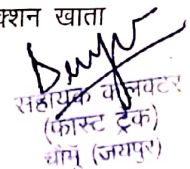 क्शन खाता
सहायक कलक्टर
(फास्ट ट्रेक)
चौमूं (जयपुर)